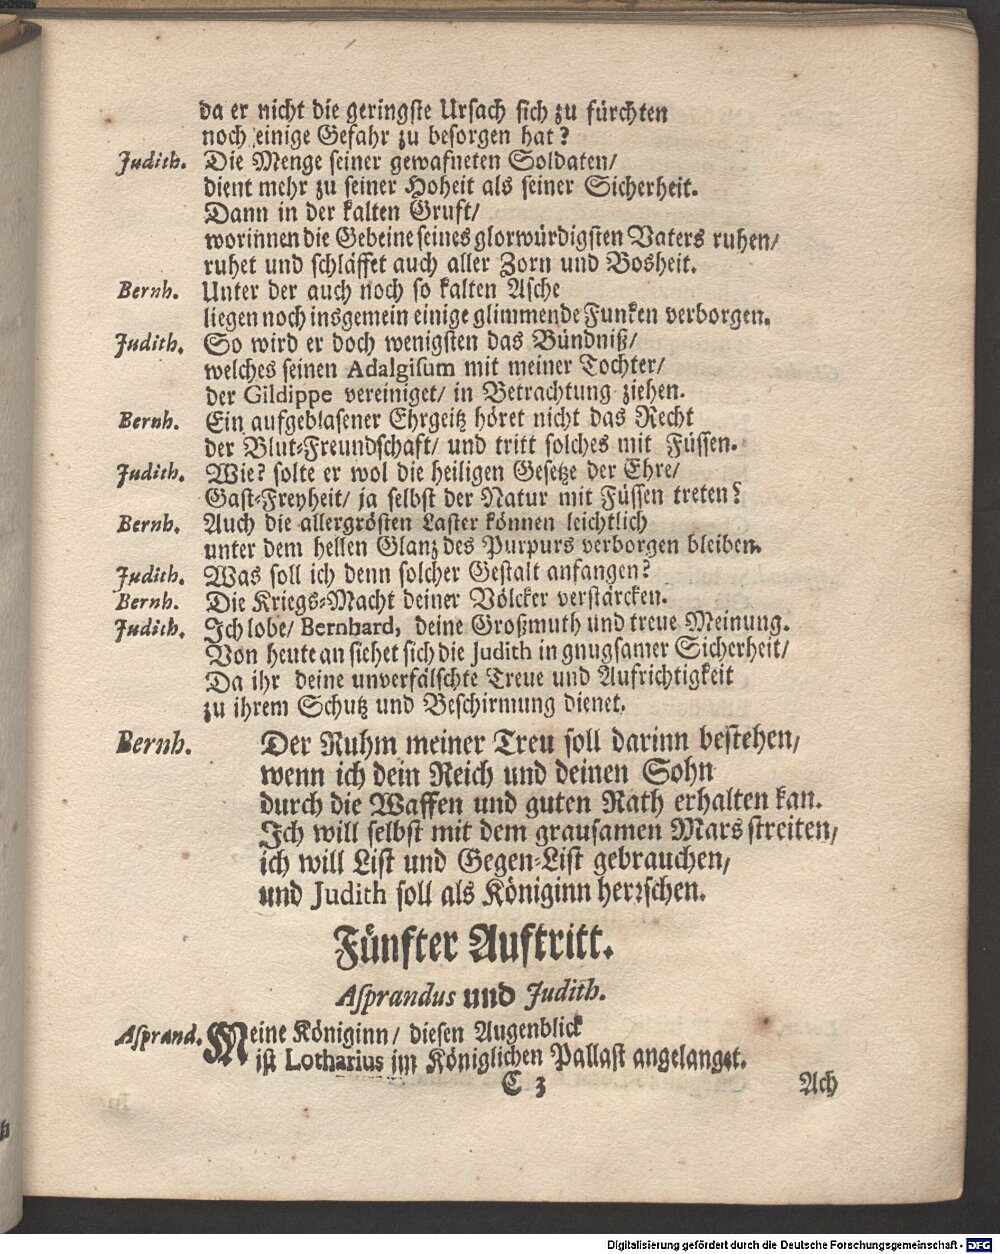 da er nicht die geringste Ursach sich zu fürchten
noch einige Gefahr zu besorgen hat?
Judith. Die Menge seiner gewafneten Soldaten/
dient mehr zu seiner Hoheit als seiner Sicherheit.
Dann in der kalten Gruft/
worinnen die Gebeine seines glorwürdigsten Vaters ruhen/
ruhet und schläffet auch aller Zorn und Bosheit.
Bernh. Unter der auch noch so kalten Asche
liegen noch insgemein einige glimmende Funken verborgen.
Judith. So wird er doch wenigsten das Bündniß/
welches seinen Adalgisum mit meiner Tochter/
der Gildippe vereiniget/ in Betrachtung ziehen.
Bernh. Ein aufgeblasener Ehrgeitz höret nicht das Recht
der Blut-Freundschaft/ und tritt solches mit Füssen.
Judith. Wie? solte er wol die heiligen Gesetze der Ehre/
Gast-Freyheit/ ja selbst der Natur mit Füssen treten?
Bernh. Auch die allergrösten Laster können leichtlich
unter dem hellen Glanz des Purpurs verborgen bleiben.
Judith. Was soll ich denn solcher Gestalt anfangen?
Bernh. Die Kriegs-Macht deiner Völcker verstärcken.
Judith. Ich lobe/ Bernhard, deine Großmuth und treue Meinung.
Von heute an siehet sich die Judith in gnugsamer Sicherheit/
Da ihr deine unverfälschte Treue und Aufrichtigkeit
zu ihrem Schutz und Beschirmung dienet.
Bernh. Der Ruhm meiner Treu soll darinn bestehen/
wenn ich dein Reich und deinen Sohn
durch die Waffen und guten Rath erhalten kan.
Ich will selbst mit dem grausamen Mars streiten/
ich will List und Gegen-List gebrauchen/
und Judith soll als Königinn herrschen.
Fünfter Auftritt.
Asprandus und Judith.
Asprand. Meine Königinn/ diesen Augenblick
ist Lotharius im Königlichen Pallast angelanget.
C 3 Ach
Digitalisierung gefördert durch die Deutsche Forschungsgemeinschaft - DFG